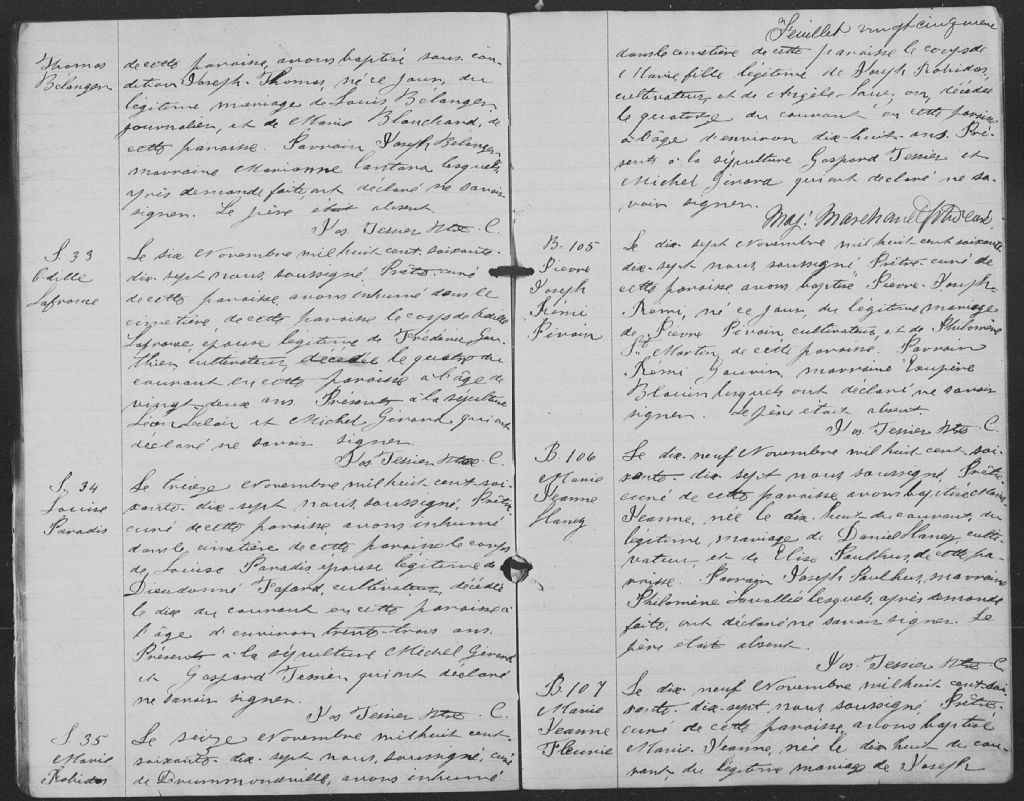 Thomas
Bélanger
de cette paroisse, avons baptisé sous con-
dition Joseph Thomas, né ce jour, du
légitime mariage de Louis Bélanger
journalier, et de Marie Blanchard, de
cette paroisse. Parrain Joseph Bélanger
marraine Marianne Cantara lesquels,
après demande faite, ont déclaré ne savoir
signer. Le père était absent.
Jos. Tessier Ptre C.
S. 33
Odille
Lafrance
Le six Novembre mil huit cent soixante-
dix-sept nous, soussigné, Prêtre-curé
de cette paroisse, avons inhumé dans le
cimetière de cette paroisse le corps de Odille
Lafrance épouse légitime de Fréderic Gau-
thier cultivateur, décédée le quatre du
courant en cette paroisse à l'âge de
vingt-deux ans. Présents à la sépulture
Léon Leclair et Michel Girard qui ont
déclaré ne savoir signer.
Jos. Tessier Ptre C.
S. 34
Louise
Paradis
Le treize Novembre mil huit cent soi-
xante-dix-sept nous, soussigné, Prêtre
curé de cette paroisse, avons inhumé
dans le cimetière de cette paroisse le corps
de Louise Paradis épouse légitime de
Dieudonné Fafard, cultivateur, décédée
le dix du courant en cette paroisse à
l'âge d'environ trente-trois ans.
Présents à la sépulture Michel Girard
et Gaspard Tessier qui ont déclaré
ne savoir signer.
Jos. Tessier Ptre C.
S. 35
Marie
Robidas
Le seize Novembre mil huit cent
soixante-dix-sept nous, soussigné, curé
de Drummondville, avons inhumé
Feuillet vingt cinquième
dans le cimetière de cette paroisse le corps de
Marie fille légitime de Joseph Robidas,
cultivateur, et de Angèle décédée
le quatorze du courant en cette paroisse
à l'âge d'environ dix-huit ans. Pré-
sents à la sépulture Gaspard Tessier et
Michel Girard qui ont déclaré ne sa-
voir signer.
Maj. Marchand Ptre Curé.
B. 105
Pierre
Joseph
Rémi
Pivain
Le dix-sept Novembre mil huit cent soixante
dix-sept nous, soussigné, Prêtre-curé de
cette paroisse avons baptisé Pierre-Joseph-
Rémi, né ce jour, du légitime mariage
de Pierre Pivain cultivateur, et de Philomène
St. Martin, de cette paroisse. Parrain
Rémi Gauvin, marraine Exupère
Blouin lesquels ont déclaré ne savoir
signer. Le père était absent.
Jos. Tessier Ptre C.
B. 106
Marie
Jeanne
Haney
Le dix-neuf Novembre mil huit cent soi-
xante-dix-sept nous, soussigné, Prêtre
curé de cette paroisse, avons baptisé Marie
Jeanne, née le dix-huit du courant, du
légitime mariage de Daniel Haney, culti-
vateur, et de Elise Paulhus, de cette pa-
roisse. Parrain Joseph Paulhus, marraine
Philomène Lavallée lesquels, après demande
faite, ont déclaré ne savoir signer. Le
père était absent.
Jos. Tessier Ptre C.
B. 107
Marie
Jeanne
Fleurie
Le dix-neuf Novembre mil huit cent soi-
xante-dix-sept, nous, soussigné Prêtre-
curé de cette paroisse, avons baptisé
Marie-Jeanne, née le dix-huit du cou-
rant, du légitime mariage de Joseph